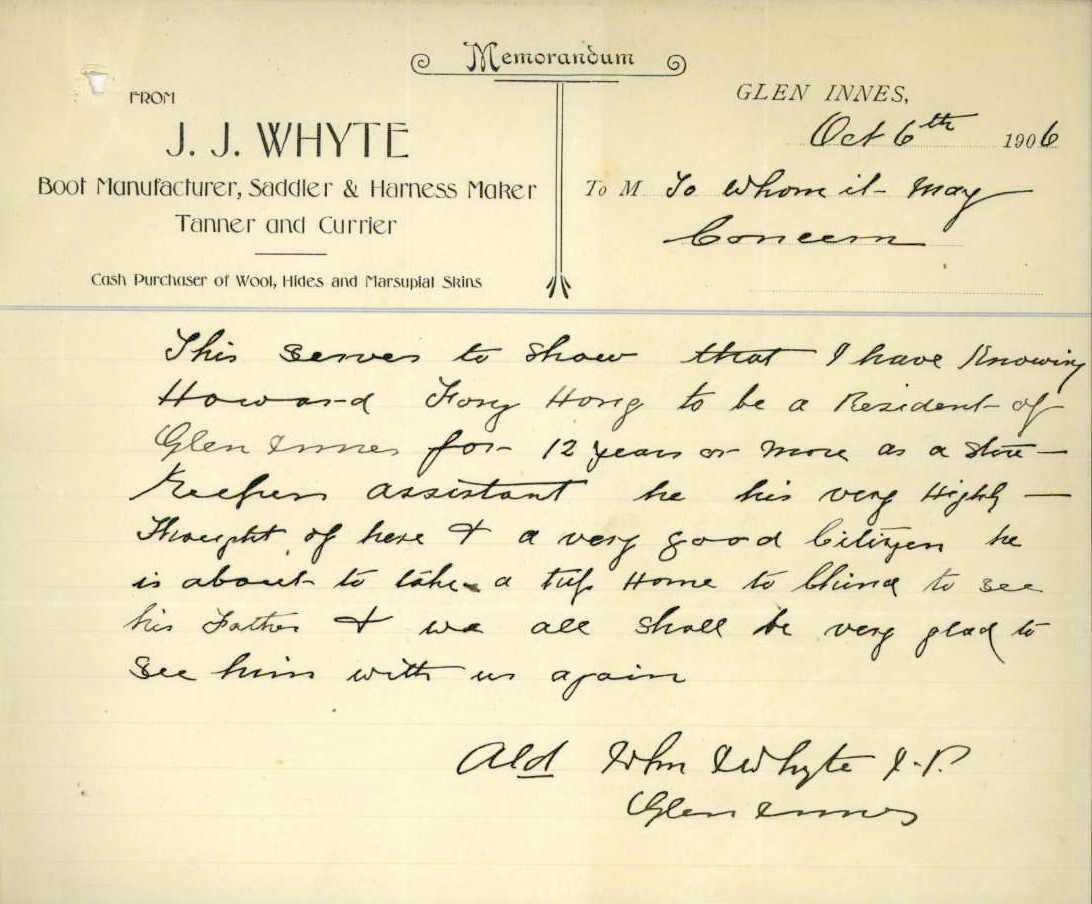 Memorandum
FROM
J. J. WHYTE
Boot Manufacturer, Saddler & Harness Maker
Tanner and Currier
Cash Purchaser of Wool, Hides and Marsupial Skins
GLEN INNES,
Oct 6th 1906
To M To whom it may
Concern
This serves to show that I have Knowing
Howard Fong Hong to be a Resident of
Glen Innes for 12 years or more as a store
Keepers assistant he his very Highly
Thought of here & a very good Citizen he
is about to take a trip Home to China to see
his Father & we all shall be very glad to
see him with us again
Ald Whm Whyte J.P.
Glen Innes